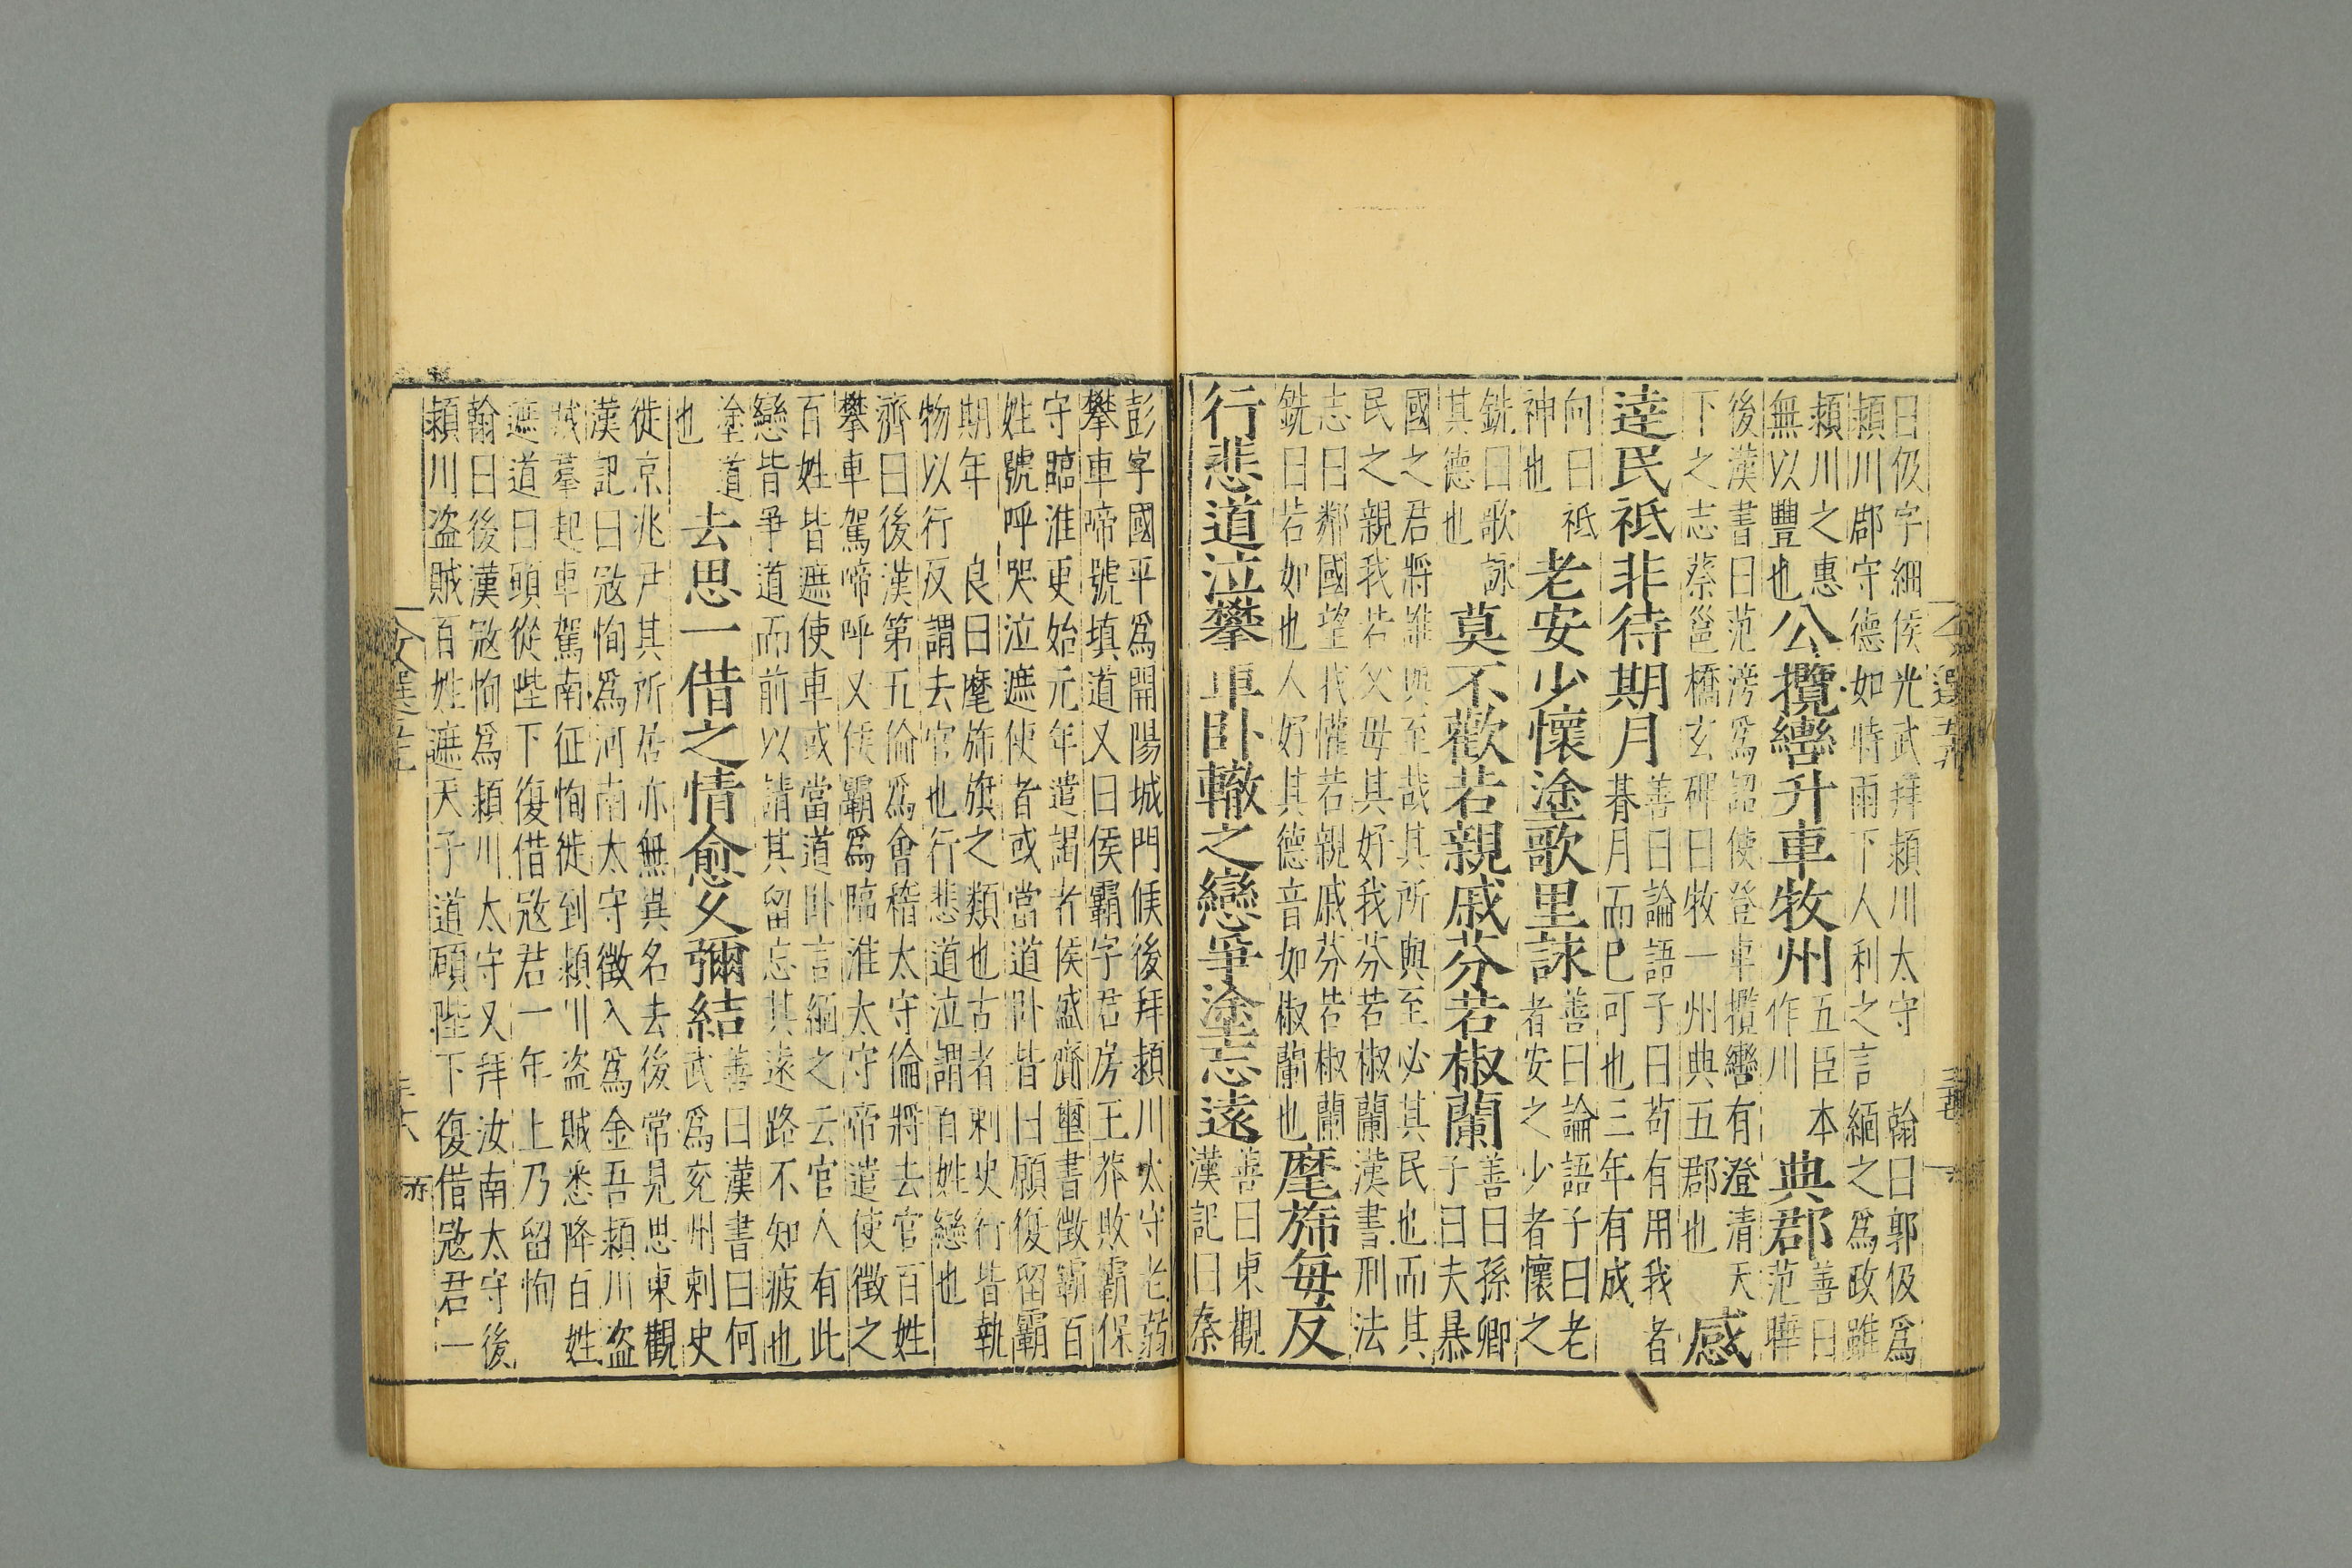 日伋字細侯光武拜潁川太守　翰曰郭伋爲
潁川郡守德如時雨下人利之言緬之爲政雖
潁川之惠
無以豐也
公攬轡升車牧州
五臣本
作川
典郡
善曰
范曄
後漢書曰范滂爲詔使登車攬轡有澄清天
下之志蔡邕橋玄碑曰牧一州典五郡也
感
達民祇非待期月
善曰論語子曰苟有用我者
朞月而已可也三年有成
向曰祗
神也
老安少懷塗歌里詠
善曰論語子曰老
者安之少者懷之
銑曰歌詠
其德也
莫不歡若親戚芬若椒蘭
善曰孫卿
子曰夫暴
國之君將誰與至哉其所與至必其民也而其
民之親我若父母其好我芬若椒蘭漢書刑法
志曰鄰國望我懽若親戚芬若椒蘭
銑曰若如也人好其德音如椒蘭也
麾斾每反
行悲道泣攀車卧轍之戀爭塗忘遠
善曰東觀
漢記曰秦
彭字國平爲開陽城門候後拜潁川太守老弱
攀車啼號填道又曰侯霸字君房王莽敗霸保
守臨淮更始元年遣謁者侯盛齎璽書徵霸百
姓號呼哭泣遮使者或當道卧皆曰願復留霸
期年　良曰麾斾旗之類也古者刺史行皆執
物以行反謂去官也行悲道泣謂百姓戀也
濟曰後漢第五倫爲會稽太守倫將去官百姓
攀車駕啼呼又侯霸爲臨淮太守帝遣使徵之
百姓皆遮使車或當道卧言緬之去官人有此
戀皆爭道而前以請其留忘其遠路不知疲也
塗道
也
去思一借之情愈久彌結
善曰漢書曰何
武爲兗州刺史
徙京兆尹其所居亦無異名去後常見思東觀
漢記曰寇恂爲河南太守徵入爲金吾潁川盜
賊羣起車駕南征恂徙到潁川盜賊悉降百姓
遮道曰願從陛下復借寇君一年上乃留恂
翰曰後漢寇恂爲潁川太守又拜汝南太守後
潁川盜賊百姓遮天子道願陛下復借寇君一